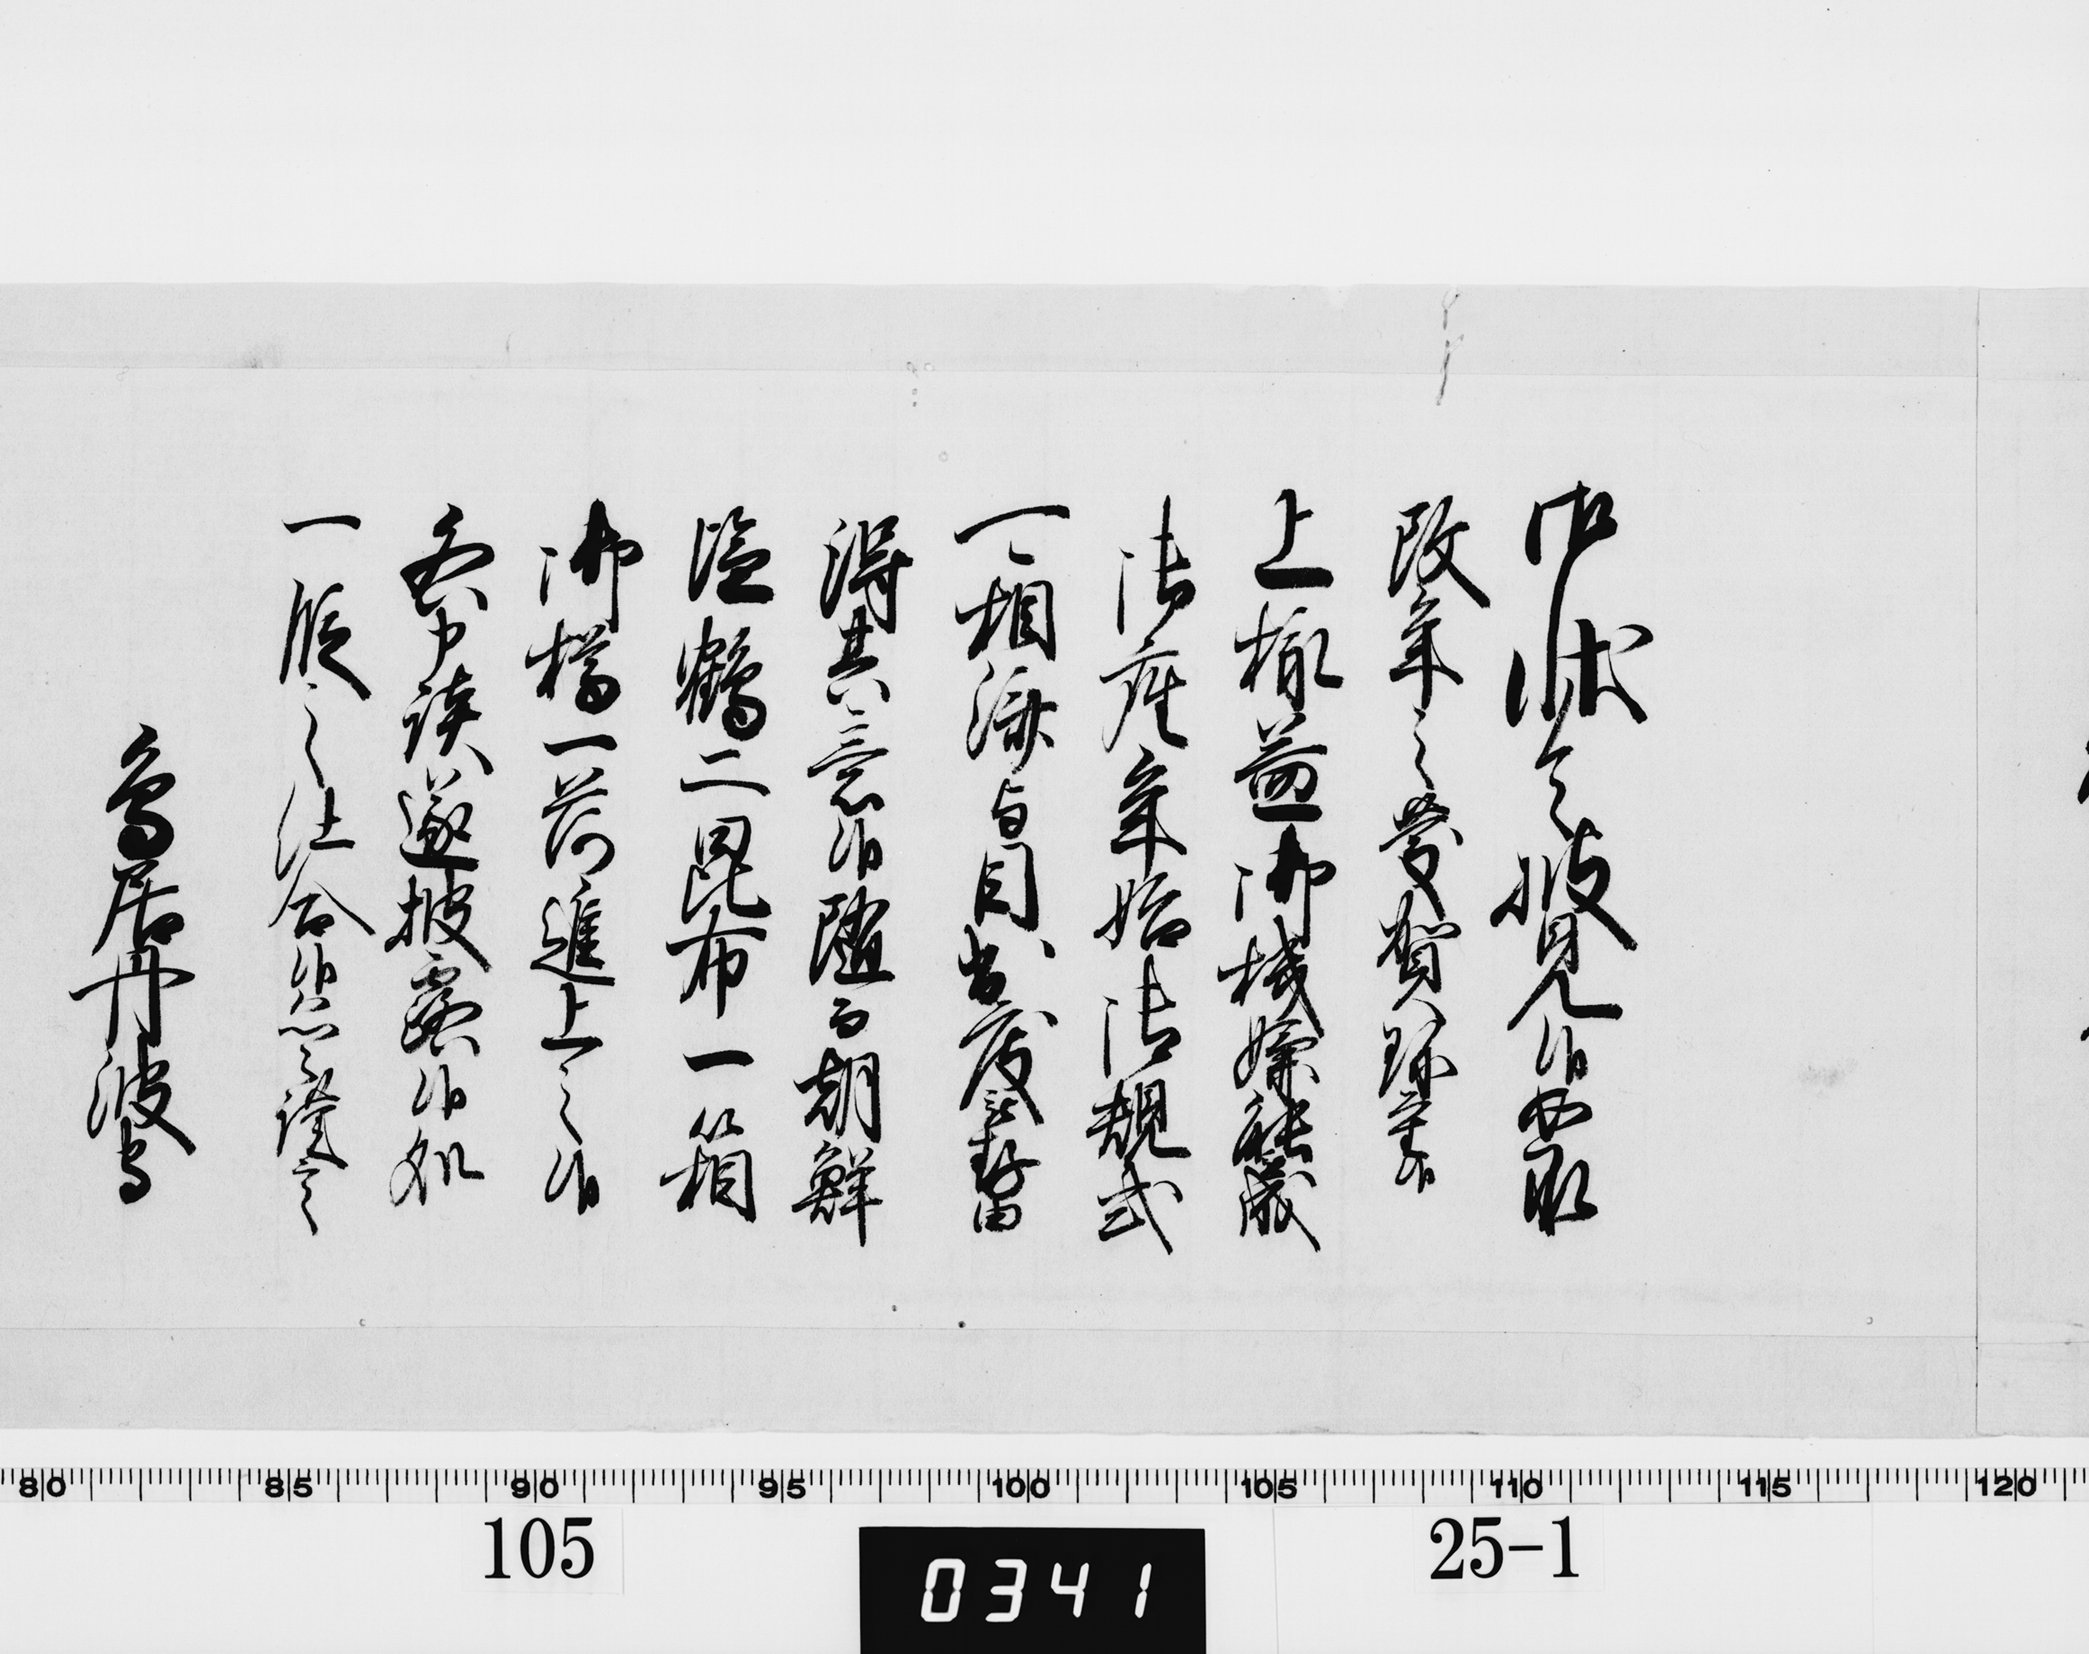 御状令披見候如承
改年之慶賀珎重候
上様益御機嫌能被成
御座年始御規式
一々相済付目出度思召
得其意候随而朝鮮
塩鶴二昆布一箱
御樽一荷進上之候
各申談遂披露候処
一段之仕合候恐々謹言
鳥居丹波守
80 85 90 95 100 105 110 115 120
105 25-1
0341